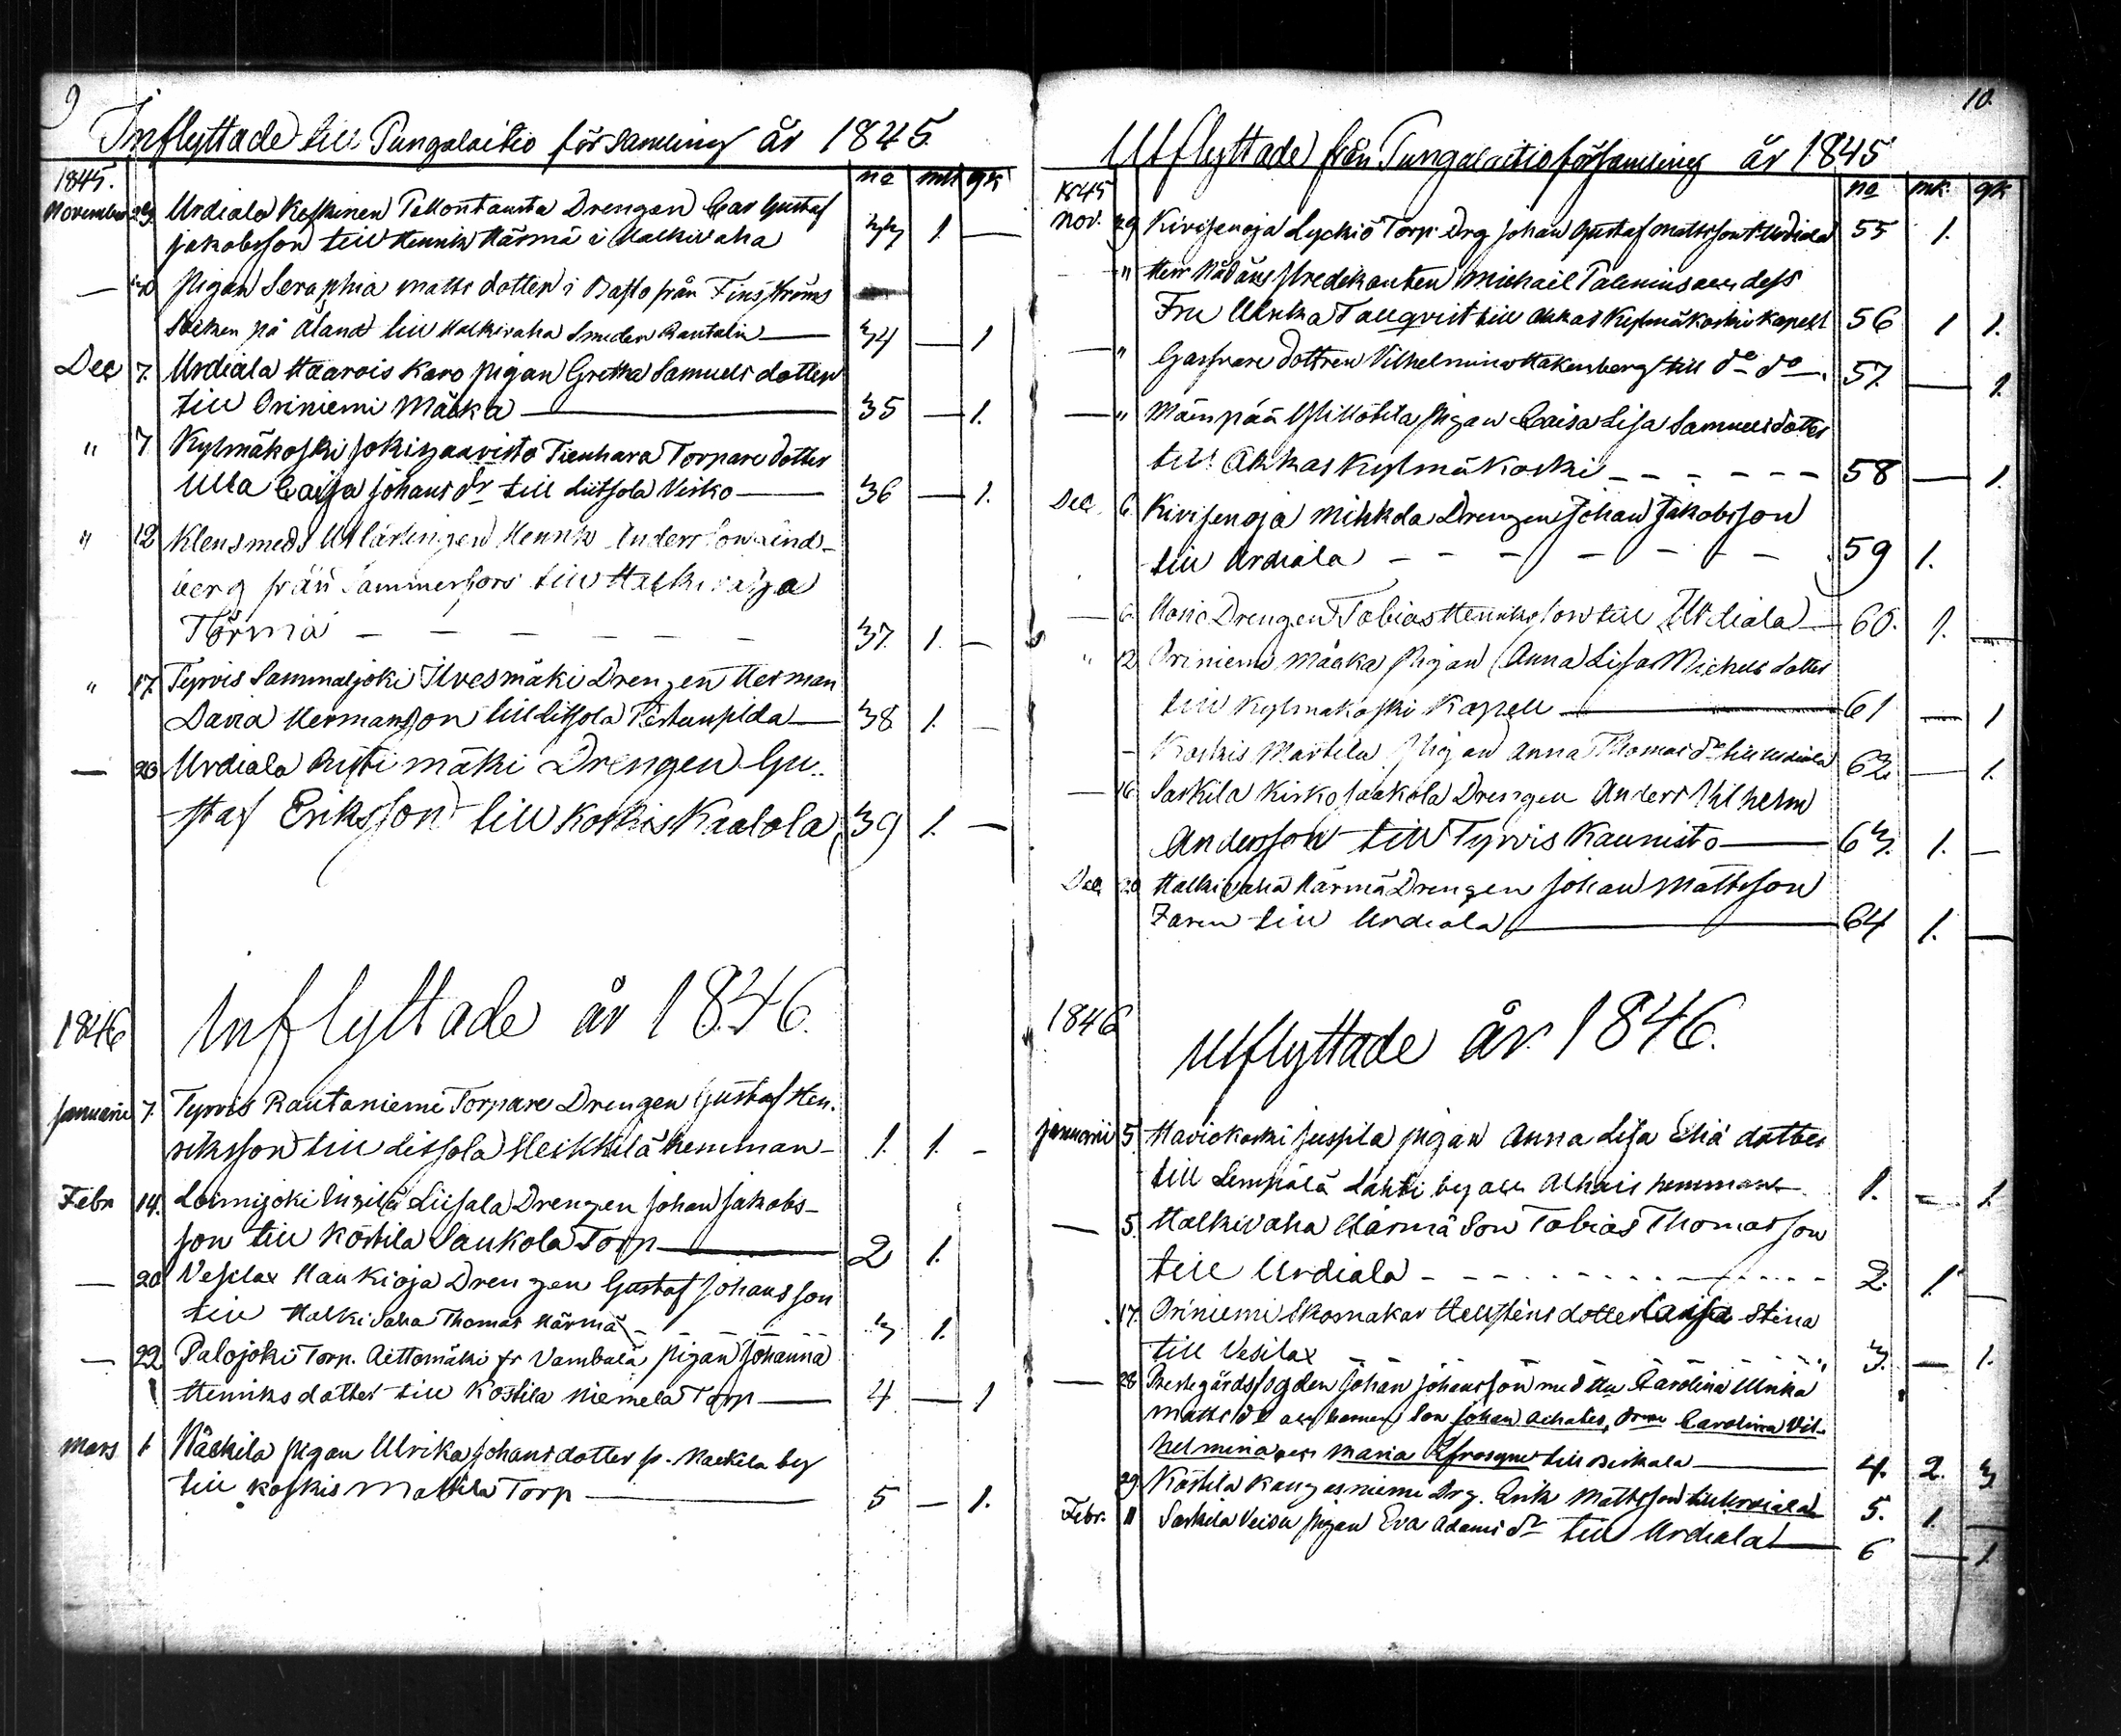 9
Inflyttade till Pungalaitio församling år 1845.
1845. no mk qk
November 29 Urdiala Keskinen Tellontausta Drengen Carl Gustaf
Jakobsson till Henrik Härmä i Halkivaha 33 1. —
— 30 Pigan Seraphia Matts dotter i Basto från Finströms
Socken på Åland till Halkivaha Smeden Rautalin — 34 — 1
Dec 7. Urdiala Haarois Karo pigan Gretha Samuels dotter
till Oriniemi Mäcka — 35 — 1.
" 7 Kylmäkoski Jokihaavisto Tienhara Torpare dotter
Ulla Caisa Johans dr till Liitsola Visko — 36 — 1.
" 12 Klensmeds Utlärlingen Henrik Andersson Lind-
berg från Tammerfors till Halkivaha
Härmä — — — — — — 37. 1. —
" 17. Tyrvis Sammaljoki Ilvesmäki Drengen Herman
David Hermansson till Litsola — 38 1. —
— 26 Urdiala mäki Drengen Gu..
staf Eriksson till Koskis Kaalola 39 1. —
Inflyttade år 1846.
1846
Januarii 7. Tyrvis Rautaniemi Torpare Drengen Gustaf Hen.
riksson till Litsola Heikkilä hemman — 1. 1. -
Febr 14. Loimijoki Liisala Drengen Johan Jakobs-
son till Kostila Saukola Torp — 2 1.
— 20 Vesilax Haukioja Drengen Gustaf Johansson
till Halkivaha Thomas Härmä - - - - - 3 1.
— 22 Palojoki Torp. Aittomäki fr Vambula pigan Johanna
Henriks dotter till Kostila Niemelä Torp — 4 — 1
Mars 1 Näckila pigan Ulrika Johansdotter fr. Näckila by
till Koskis Mattila Torp — 5 — 1.
10.
Utflyttade från Pungalaitio församling år 1845
1845 no mk. qk
Nov. 29 Kivisenoja Lyckiö Torp. Drg Johan Gustaf Mattsson t. Urdiala 55 1.
— " Herr Nådårs Predikanten Michael Palenius och dess
Fru Ulrika Tallqvist till Akkas Kylmäkoski Kapell 56 1 1.
— " Garfvare dottren Vilhelmina Hakenberg till do do — 57. — 1.
— " Mäenpää Pigan Caisa Lisa Samuelsdotter
till Akkas Kylmäkoski — — — — — — 58 — 1.
Dec. 6. Kivisenoja Mikkola Drengen Johan Jakobsson
till Urdiala — — — — — — — 59 1.
— 6. Drengen Tobias Henriksson till Urdiala — 60. 1. —
" 12 Oriniemi Mäcka Pigan Anna Lisa Michels dotter
till Kylmäkoski Kapell — 61 — 1
- Koskis Marttila Pigan Anna Thomas dr till Urdiala 62. — 1.
— 16. Sarkila Kirko Jaakola Drengen Anders Vilhelm
Andersson till Tyrvis Kaunisto — 63. 1. —
Dec. 20 Halkivaha Härmä Drengen Johan Mattsson
till Urdiala — 64 1. —
1846
Utflyttade år 1846.
Januarii 5. Haviokoski Jussila pigan Anna Lisa Eliä dotter
till Lempälä Lahti by och Alhais hemman — 1. - 1.
— 5. Halkivaha Härmä Son Tobias Thomasson
till Urdiala - - - - - - - - - - 2. 1. —
17. Oriniemi Skomakar Hellsténs dotter Caisa Stina
till Vesilax - - - - - - - - 3. — 1.
— 28 Prestgårdsfogden Johan Johansson med Hu Carolina Ulrika
Matts dr och barnen Son Johan Achates, Carolina Vil-
helmina och Maria Efrosyne till Birkala — 4. 2. 3
29 Kostila Kangasniemi Drg. Erik Mattsson till Urdiala 5. 1. —
Febr. 11 Sarkila Veisu pigan Eva Adams dr till Urdiala — 6 — 1.